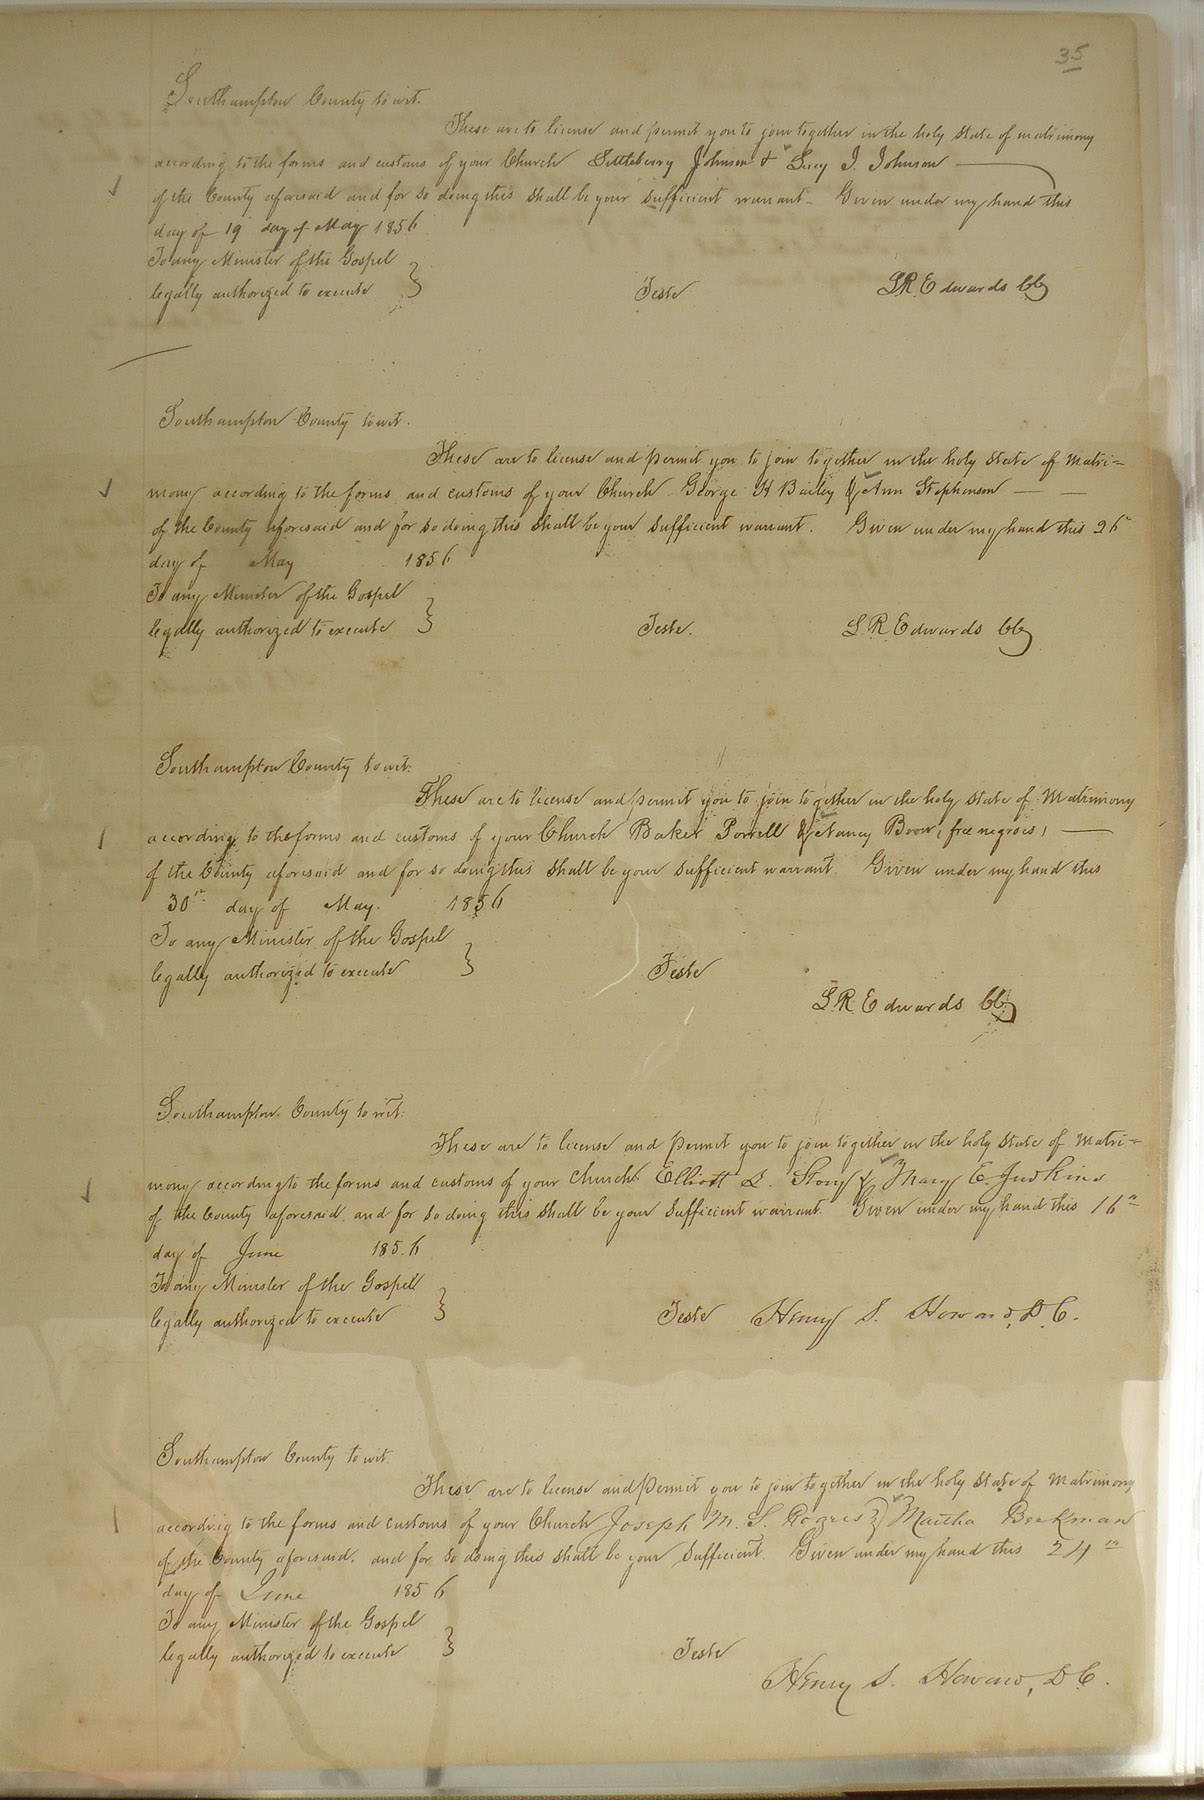 35
Southampton County to wit.
These are to license and permit you to join together in the holy state of matrimony
according to the forms and customs of your Church Littleberry Johnson & Lucy J. Johnson
of the County aforesaid and for so doing this shall be your sufficient warrant. Given under my hand this
day of 19 day of May 1856
To any Minister of the Gospel
legally authorized to execute } Teste LR Edwards CC
Southampton County to wit.
These are to license and permit you to join together in the holy state of Matri=
mony according to the forms and customs of your Church George H Bailey & Ann Stephenson
of the County aforesaid and for so doing this shall be your sufficient warrant. Given under my hand this 26"
day of May 1856
To any Minister of the Gospel
legally authorized to execute } Teste. L R Edwards CC
Southampton County to wit.
These are to license and permit you to join together in the holy state of Matrimony
according to the forms and customs of your Church Baker Powell & Nancy Boon (free negroes)
of the County aforesaid and for so doing this shall be your sufficient warrant. Given under my hand this
30th day of May. 1856
To any Minister of the Gospel
legally authorized to execute } Teste
L.R. Edwards CC
Southampton County to wit.
These are to license and permit you to join together in the holy state of Matri=
mony according to the forms and customs of your Church Elliott L. Story & Mary E. Judkins
of the County aforesaid, and for so doing this shall be your sufficient warrant. Given under my hand this 16th
day of June 1856
To any Minister of the Gospel
legally authorized to execute } Teste Henry S. Howard, D.C.
Southampton County to wit.
These are to license and permit you to join together in the holy state of Matrimony
according to the forms and customs of your Church Joseph M. S. Rogers & Martha Beekman
of the County aforesaid, and for so doing this shall be your sufficient. Given under my hand this 24th
day of June 1856
To any Minister of the Gospel
legally authorized to execute } Teste
Henry S. Howard, D.C.